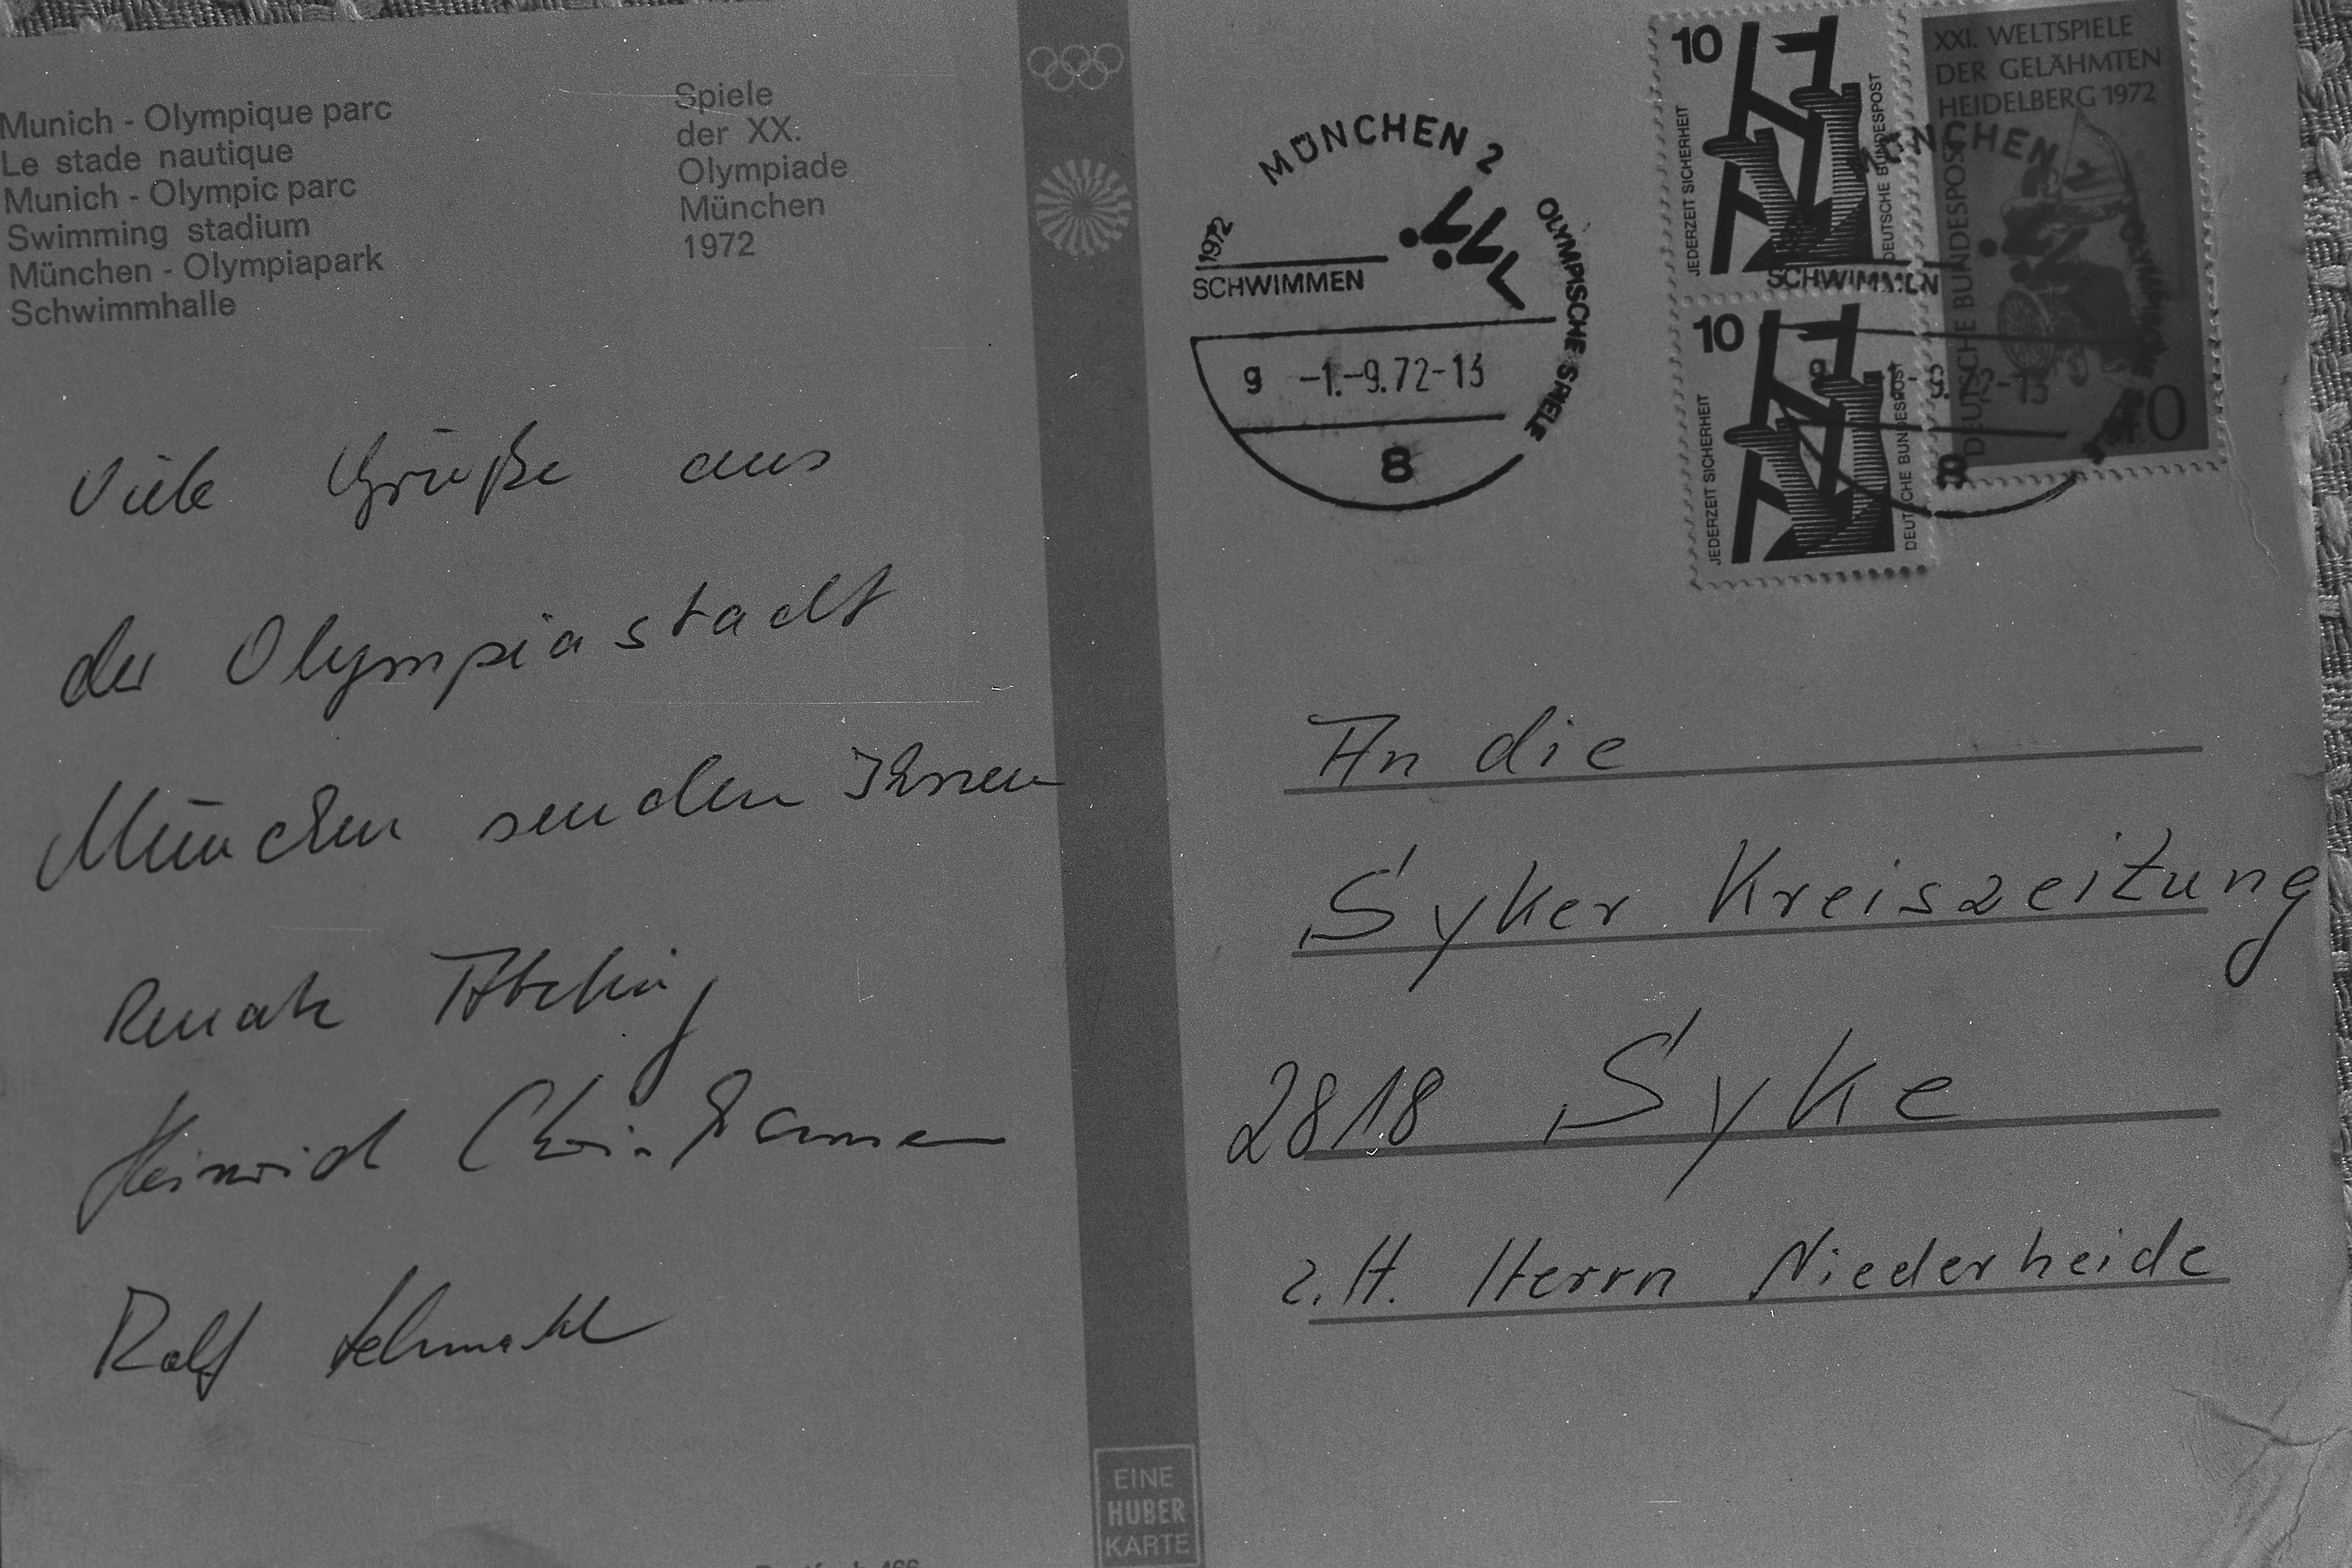 Munich - Olympique parc
Le stade nautique
Munich - Olympic parc
Swimming stadium
München - Olympiapark
Schwimmhalle
Spiele
der XX.
Olympiade
München
1972
Viele Grüße aus
der Olympiastadt
München senden Ihnen
Renate
Heinrich
Ralf
EINE
HUBER
KARTE
MÜNCHEN 2
1972
OLYMPISCHE SPIELE
SCHWIMMEN
g -1.-9.72-13
8
10
JEDERZEIT SICHERHEIT
DEUTSCHE BUNDESPOST
10
JEDERZEIT SICHERHEIT
DEUTSCHE BUNDESPOST
XXI. WELTSPIELE
DER GELÄHMTEN
HEIDELBERG 1972
DEUTSCHE BUNDESPOST
40
MÜNCHEN 2
OLYMPISCHE
SCHWIMMEN
g -1.-9.72-13
8
An die
Syker Kreiszeitung
2818 Syke
z.H. Herrn Niederheide